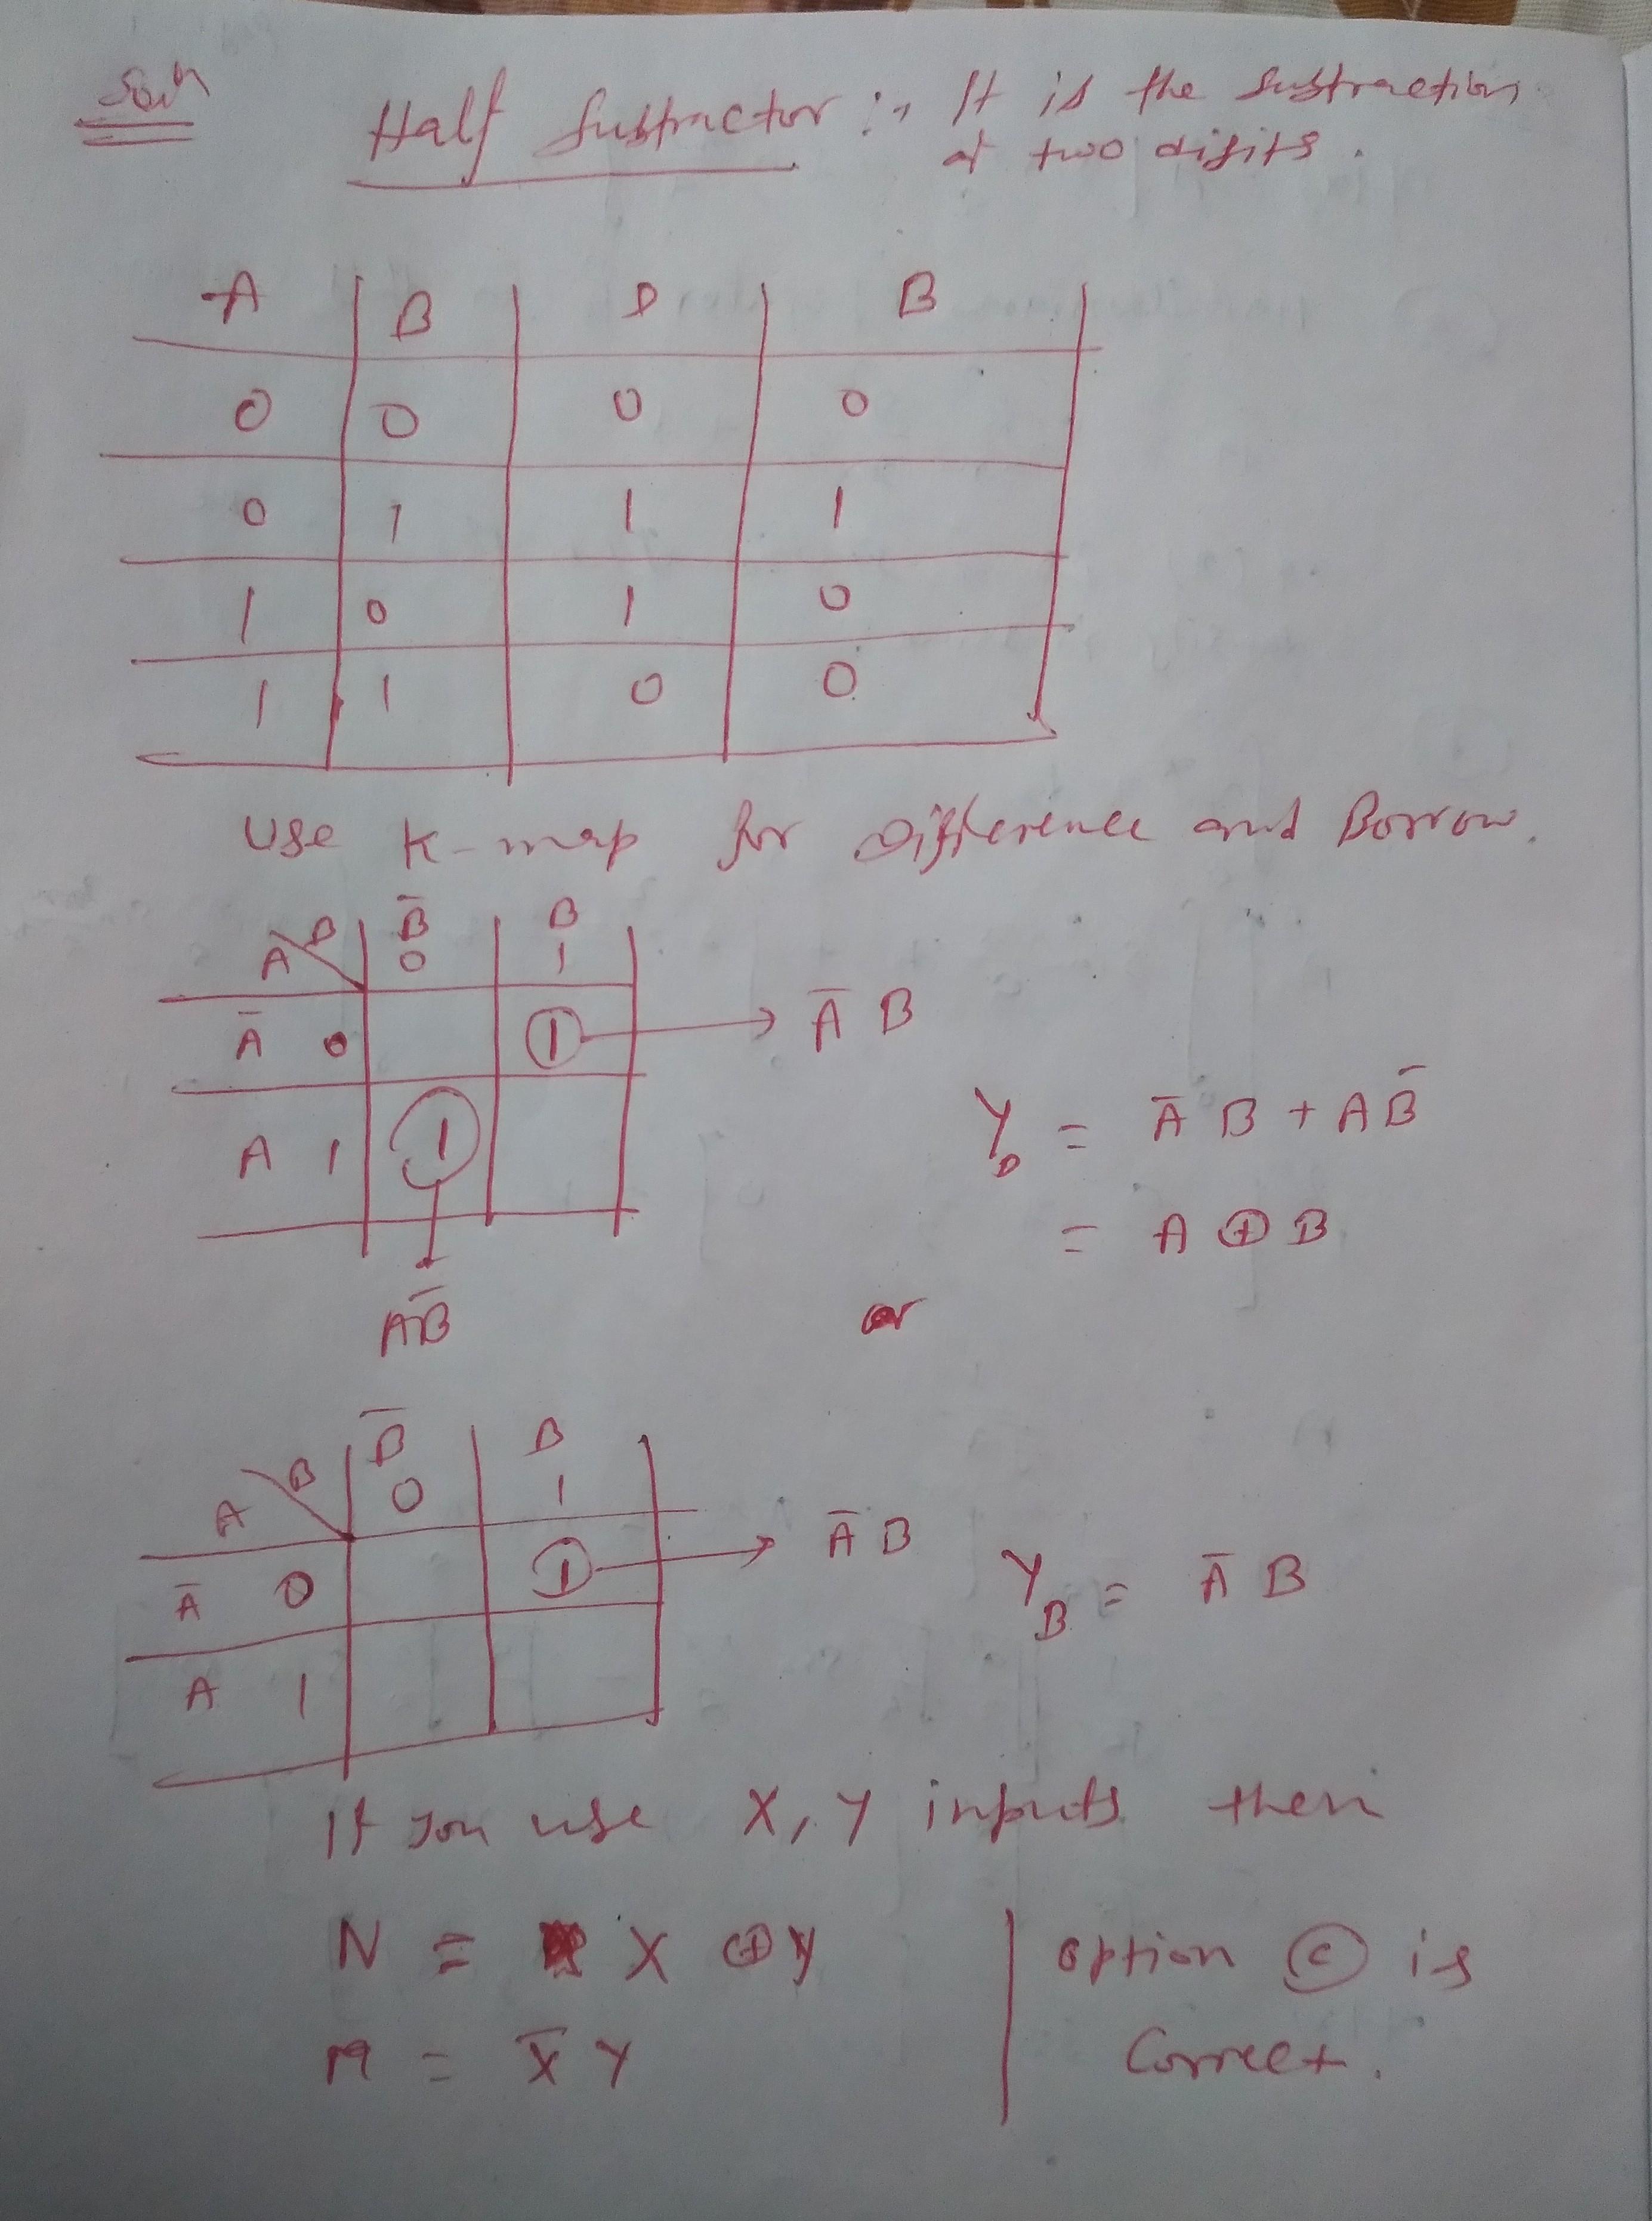 Soln
Half Subtractor :- It is the subtraction
of two digits.
A B D B
0 0 0 0
0 1 1 1
1 0 1 0
1 1 0 0
Use K-map for Difference and Borrow.
A B B̅ B
0 1
A̅ 0 1 → A̅ B
A 1 1
Y_D = A̅ B + A B̅
= A ⊕ B
A B̅
or
A B B̅ B
0 1
A̅ 0 1 → A̅ B Y_B = A̅ B
A 1
If you use X, Y inputs then
N = X ⊕ Y
M = X̅ Y
option (C) is
Correct.